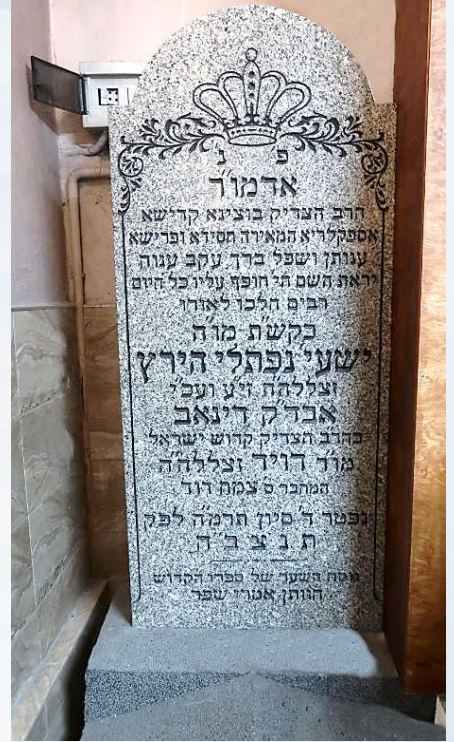 פ נ
אדמו״ר
הרב הצדיק בוצינא קדישא
אספקלריא המאירה חסידא ופרישא
ענותן ושפל ברך עקב ענוה
יראת השם חי חופף עליו כל היום
רבים הלכו לאורו
בקש״ת מו״ה
ישעי׳ נפתלי הירץ
זצללה״ה זי״ע ועכ״י
אבדק דינאב
בהרב הצדיק קדוש ישראל
מו״ר דויד זצללה״ה
המחבר ס צמח דוד
נפטר ד׳ סיון תרמ״ה לפק
ת נ צ ב ה
נוסח השער של ספרו הקדוש
הנותן אמרי שפר